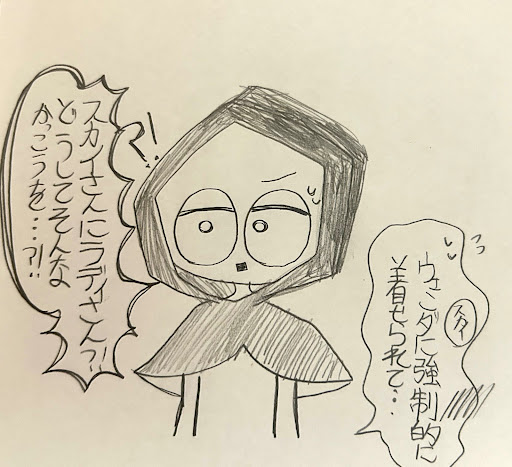 スカイさんにラディさん?!
どうしてそんな
かっこうを…?!!
?!
に強制的に
着せられて・・